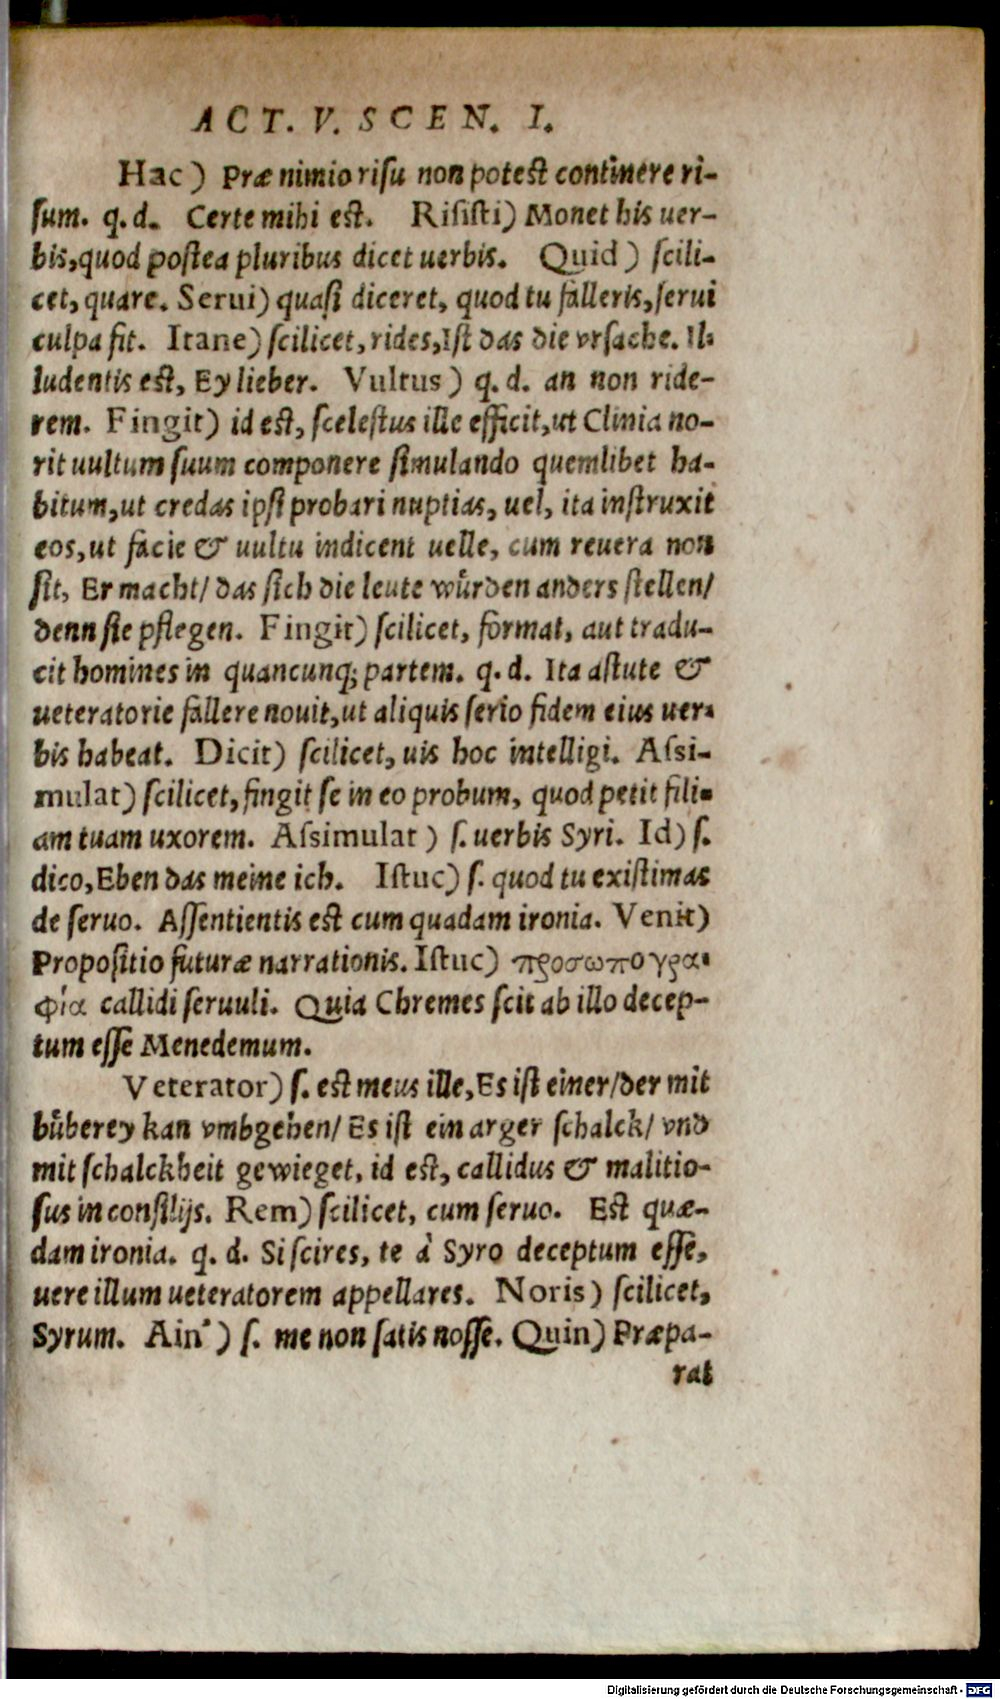 ACT. V. SCEN. I.
Hac) Præ nimio risu non potest continere ri-
sum. q.d. Certe mihi est. Risisti) Monet his uer-
bis, quod postea pluribus dicet uerbis. Quid) scili-
cet, quare. Serui) quasi diceret, quod tu falleris, serui
culpa fit. Itane) scilicet, rides, Ist das die vrsache. Il-
ludentis est, Ey lieber. Vultus) q.d. an non ride-
rem. Fingit) id est, scelestus ille efficit, ut Clinia no-
rit uultum suum componere simulando quemlibet ha-
bitum, ut credas ipsi probari nuptias, uel, ita instruxit
eos, ut facie & uultu indicent uelle, cum reuera non
sit, Er macht/ das sich die leute wuͤrden anders stellen/
denn sie pflegen. Fingit) scilicet, format, aut tradu-
cit homines in quancunq; partem. q.d. Ita astute &
ueteratorie fallere nouit, ut aliquis serio fidem eius uer-
bis habeat. Dicit) scilicet, uis hoc intelligi. Assi-
mulat) scilicet, fingit se in eo probum, quod petit fili-
am tuam uxorem. Assimulat) s. uerbis Syri. Id) s.
dico, Eben das meine ich. Istuc) s. quod tu existimas
de seruo. Assentientis est cum quadam ironia. Venit)
Propositio futuræ narrationis. Istuc) προσωπογρα-
φία callidi seruuli. Quia Chremes scit ab illo decep-
tum esse Menedemum.
Veterator) s. est meus ille, Es ist einer/der mit
buͤberey kan vmbgehen/ Es ist ein arger schalck/ vnd
mit schalckheit gewieget, id est, callidus & malitio-
sus in consilijs. Rem) scilicet, cum seruo. Est quæ-
dam ironia. q.d. Si scires, te à Syro deceptum esse,
uere illum ueteratorem appellares. Noris) scilicet,
Syrum. Ain') s. me non satis nosse. Quin) Præpa-
rat
Digitalisierung gefördert durch die Deutsche Forschungsgemeinschaft - DFG